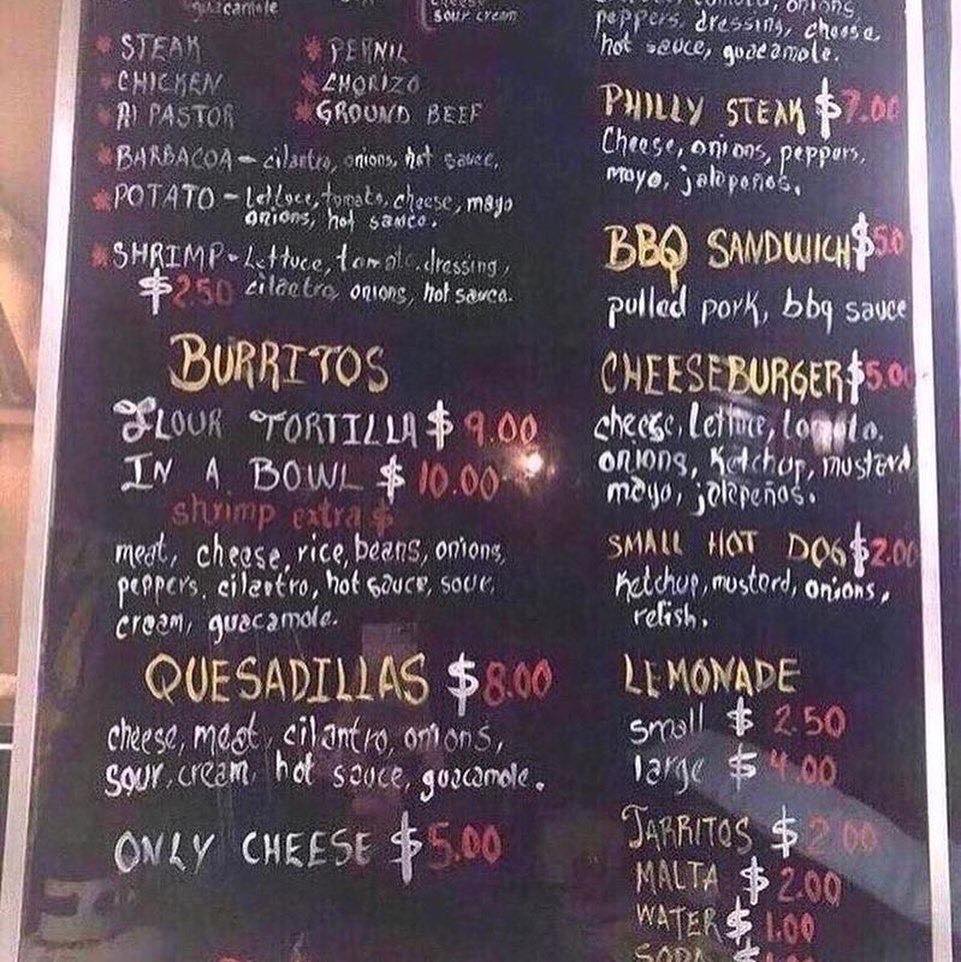 guacamole
sour cream
* STEAK
* PERNIL
* CHICKEN
* CHORIZO
* Al PASTOR
* GROUND BEEF
* BARBACOA - cilantro, onions, hot sauce,
* POTATO - Lettuce, tomato, cheese, mayo
onions, hot sauce.
* SHRIMP - Lettuce, tomato, dressing,
$2.50 cilantro, onions, hot sauce.
BURRITOS
FLOUR TORTILLA $ 9.00
IN A BOWL $ 10.00
shrimp extra $
meat, cheese, rice, beans, onions,
peppers, cilantro, hot sauce, sour,
cream, guacamole.
QUESADILLAS $8.00
cheese, meat, cilantro, onions,
sour, cream, hot sauce, guacamole.
ONLY CHEESE $5.00
onions,
peppers, dressing, cheese,
hot sauce, guacamole.
PHILLY STEAK $7.00
Cheese, onions, peppers,
mayo, jalapeños.
BBQ SANDWICH $5.0
pulled pork, bbq sauce
CHEESEBURGER $5.00
cheese, lettuce, tomato,
onions, ketchup, mustard
mayo, jalapeños.
SMALL HOT DOG $2.00
ketchup, mustard, onions,
relish.
LEMONADE
small $ 2.50
large $ 4.00
JARRITOS $ 2.00
MALTA $ 2.00
WATER $ 1.00
SODA